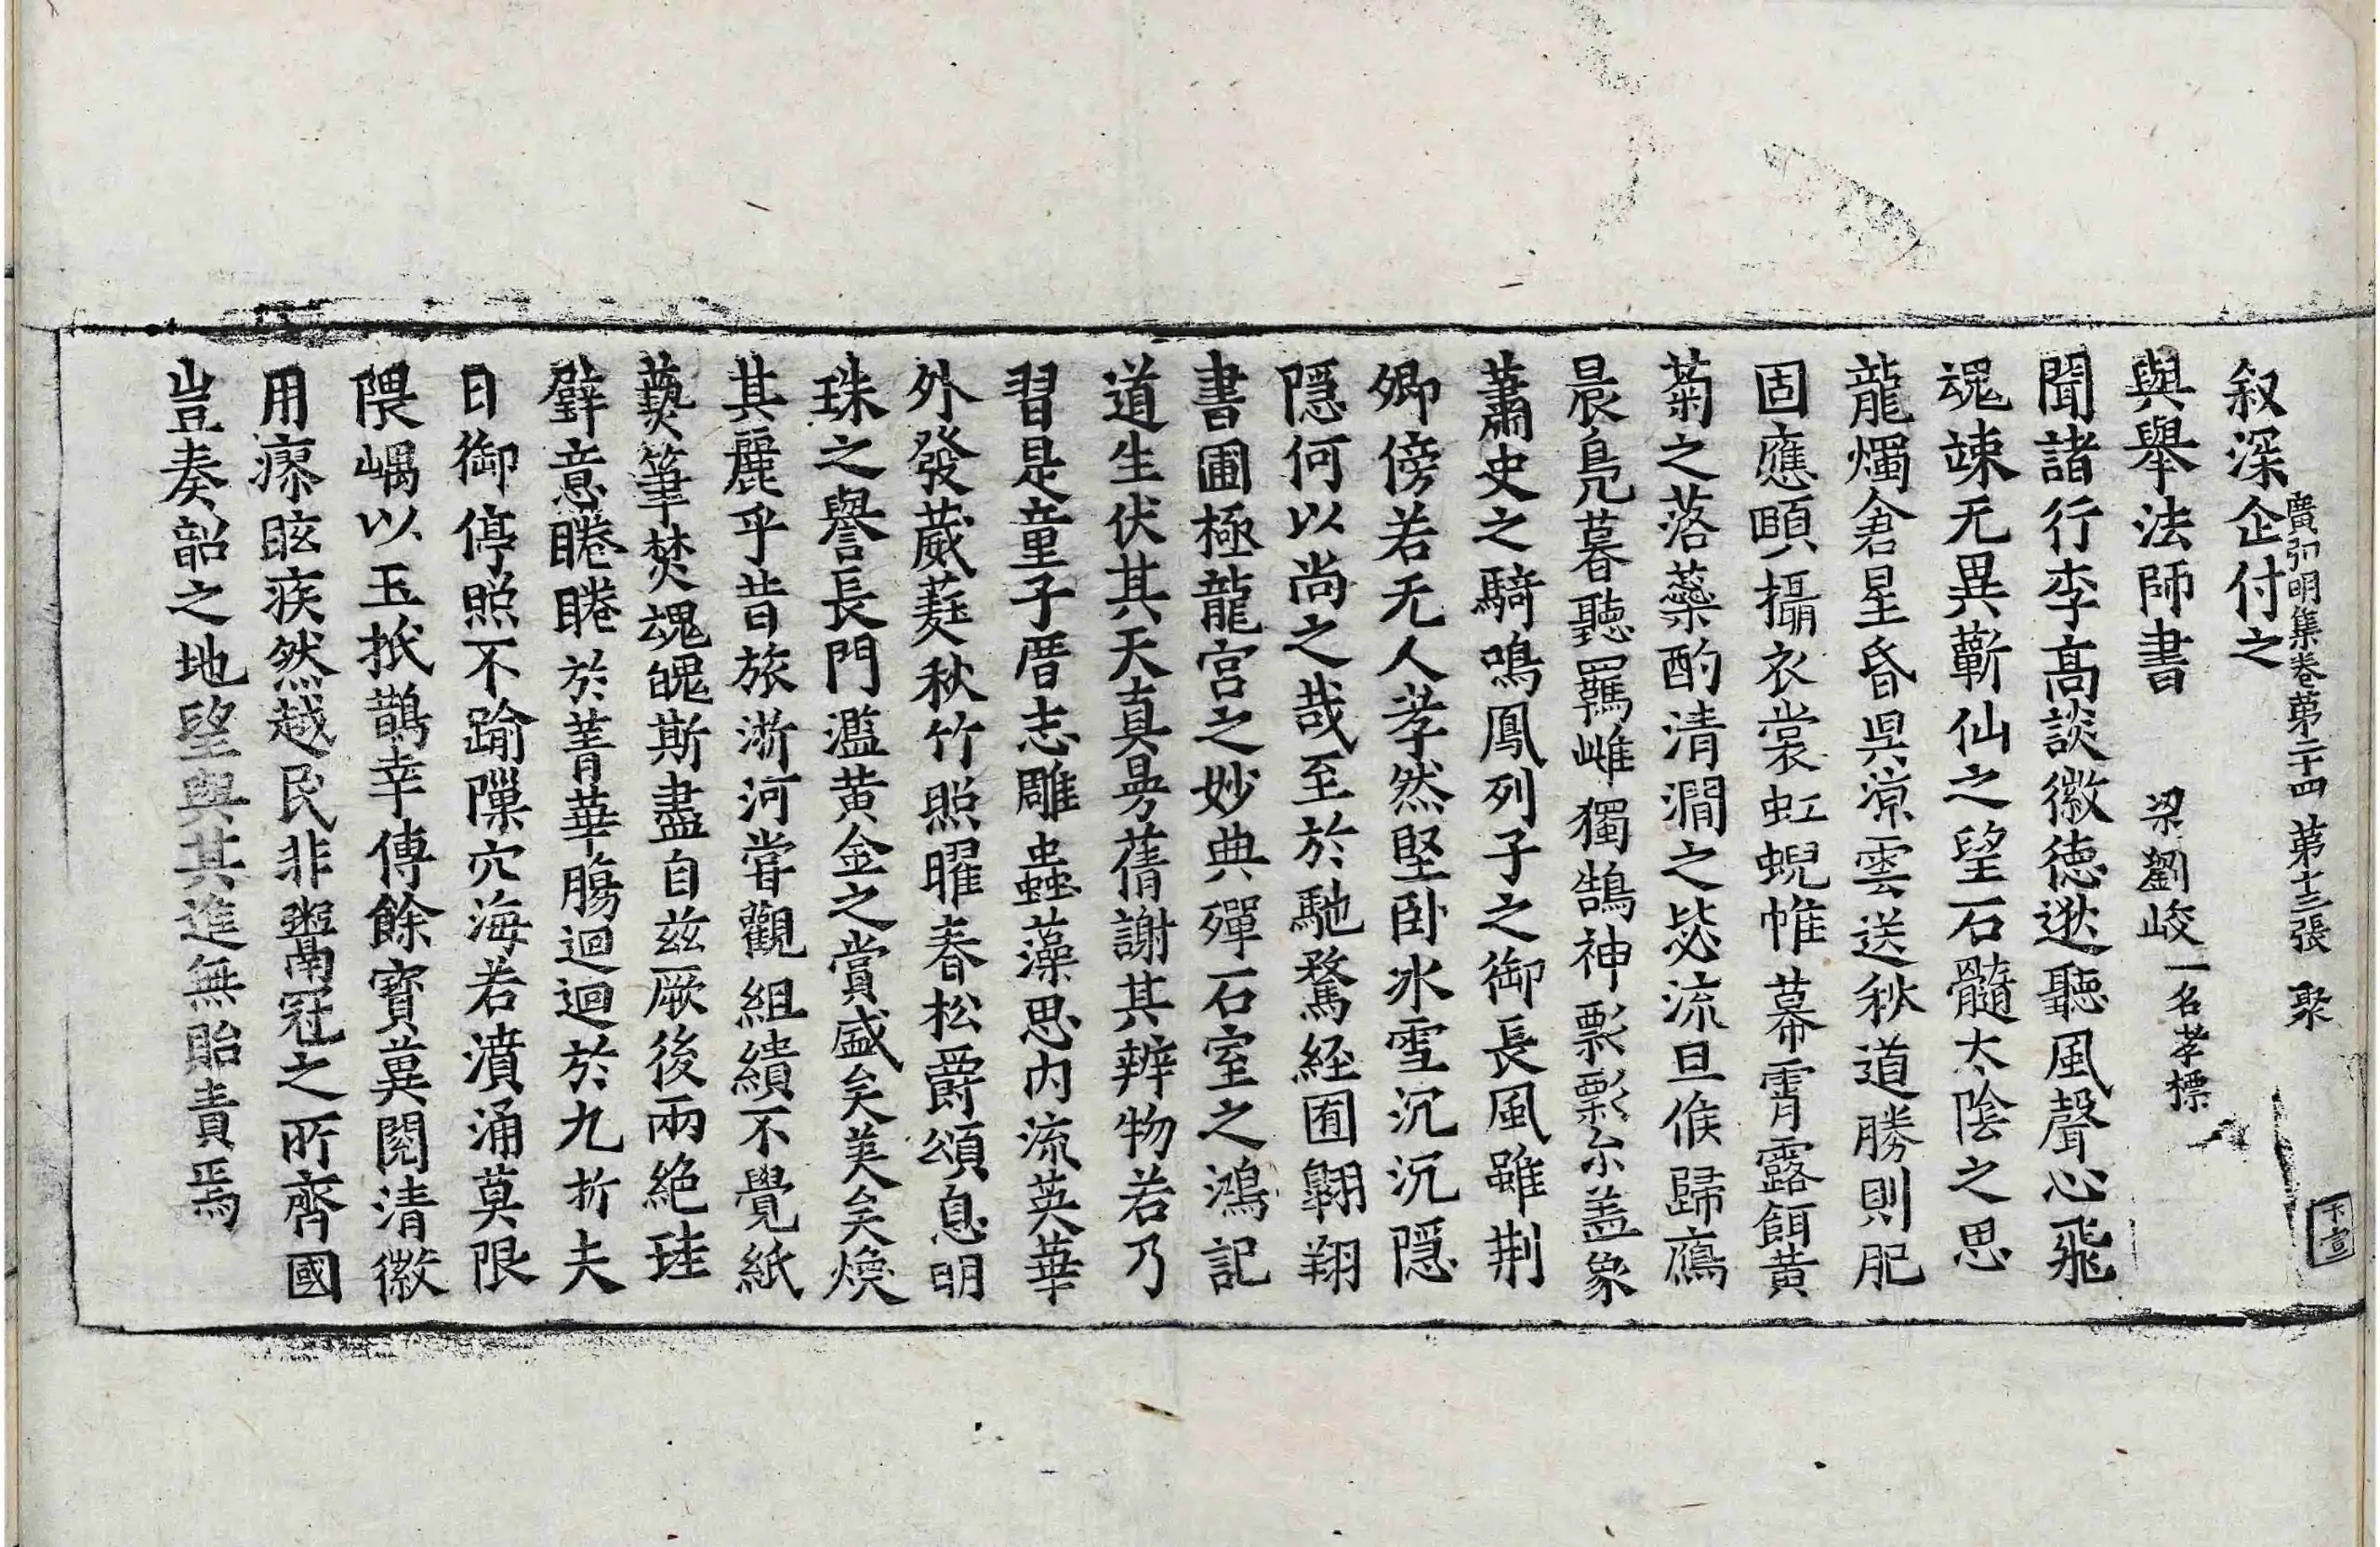 叙深企付之
廣弘明集卷第二十四 第十三張 聚
與舉法師書 梁劉峻一名孝標
聞諸行李高談徽德逖聽風聲心飛
魂竦无異蘄仙之望石髓太陰之思
龍燭倉星昏昊涼雲送秋道勝則肥
固應頤攝衣裳虹蜺帷幕霄露餌黄
菊之落蘂酌清澗之毖流旦候歸鴈
晨鳧暮聽羈雌獨鵠神飄飄尒盖象
蕭史之騎鳴鳳列子之御長風雖荆
卿傍若无人孝然堅卧氷雪沉沉隱
隱何以尚之哉至於馳騖経囿翺翔
書圃極龍宫之妙典殫石室之鴻記
道生伏其天真曼蒨謝其辨物若乃
習是童子厝志雕蟲藻思内流英華
外發葳蕤秋竹照曜春松爵頌息明
珠之譽長門濫黄金之賞盛矣美矣煥
其麗乎昔旅浙河嘗觀組繢不覺紙
爇筆焚魂魄斯盡自兹厥後兩絶珪
璧意睠睠於菁華腸迴迴於九折夫
日御停照不踰隟穴海若濆涌莫限
隈嵎以玉抵鵲幸傳餘寳冀閲清徽
用瘵眩疾然越民非鬻冠之所齊國
豈奏韶之地望與其進無貽責焉